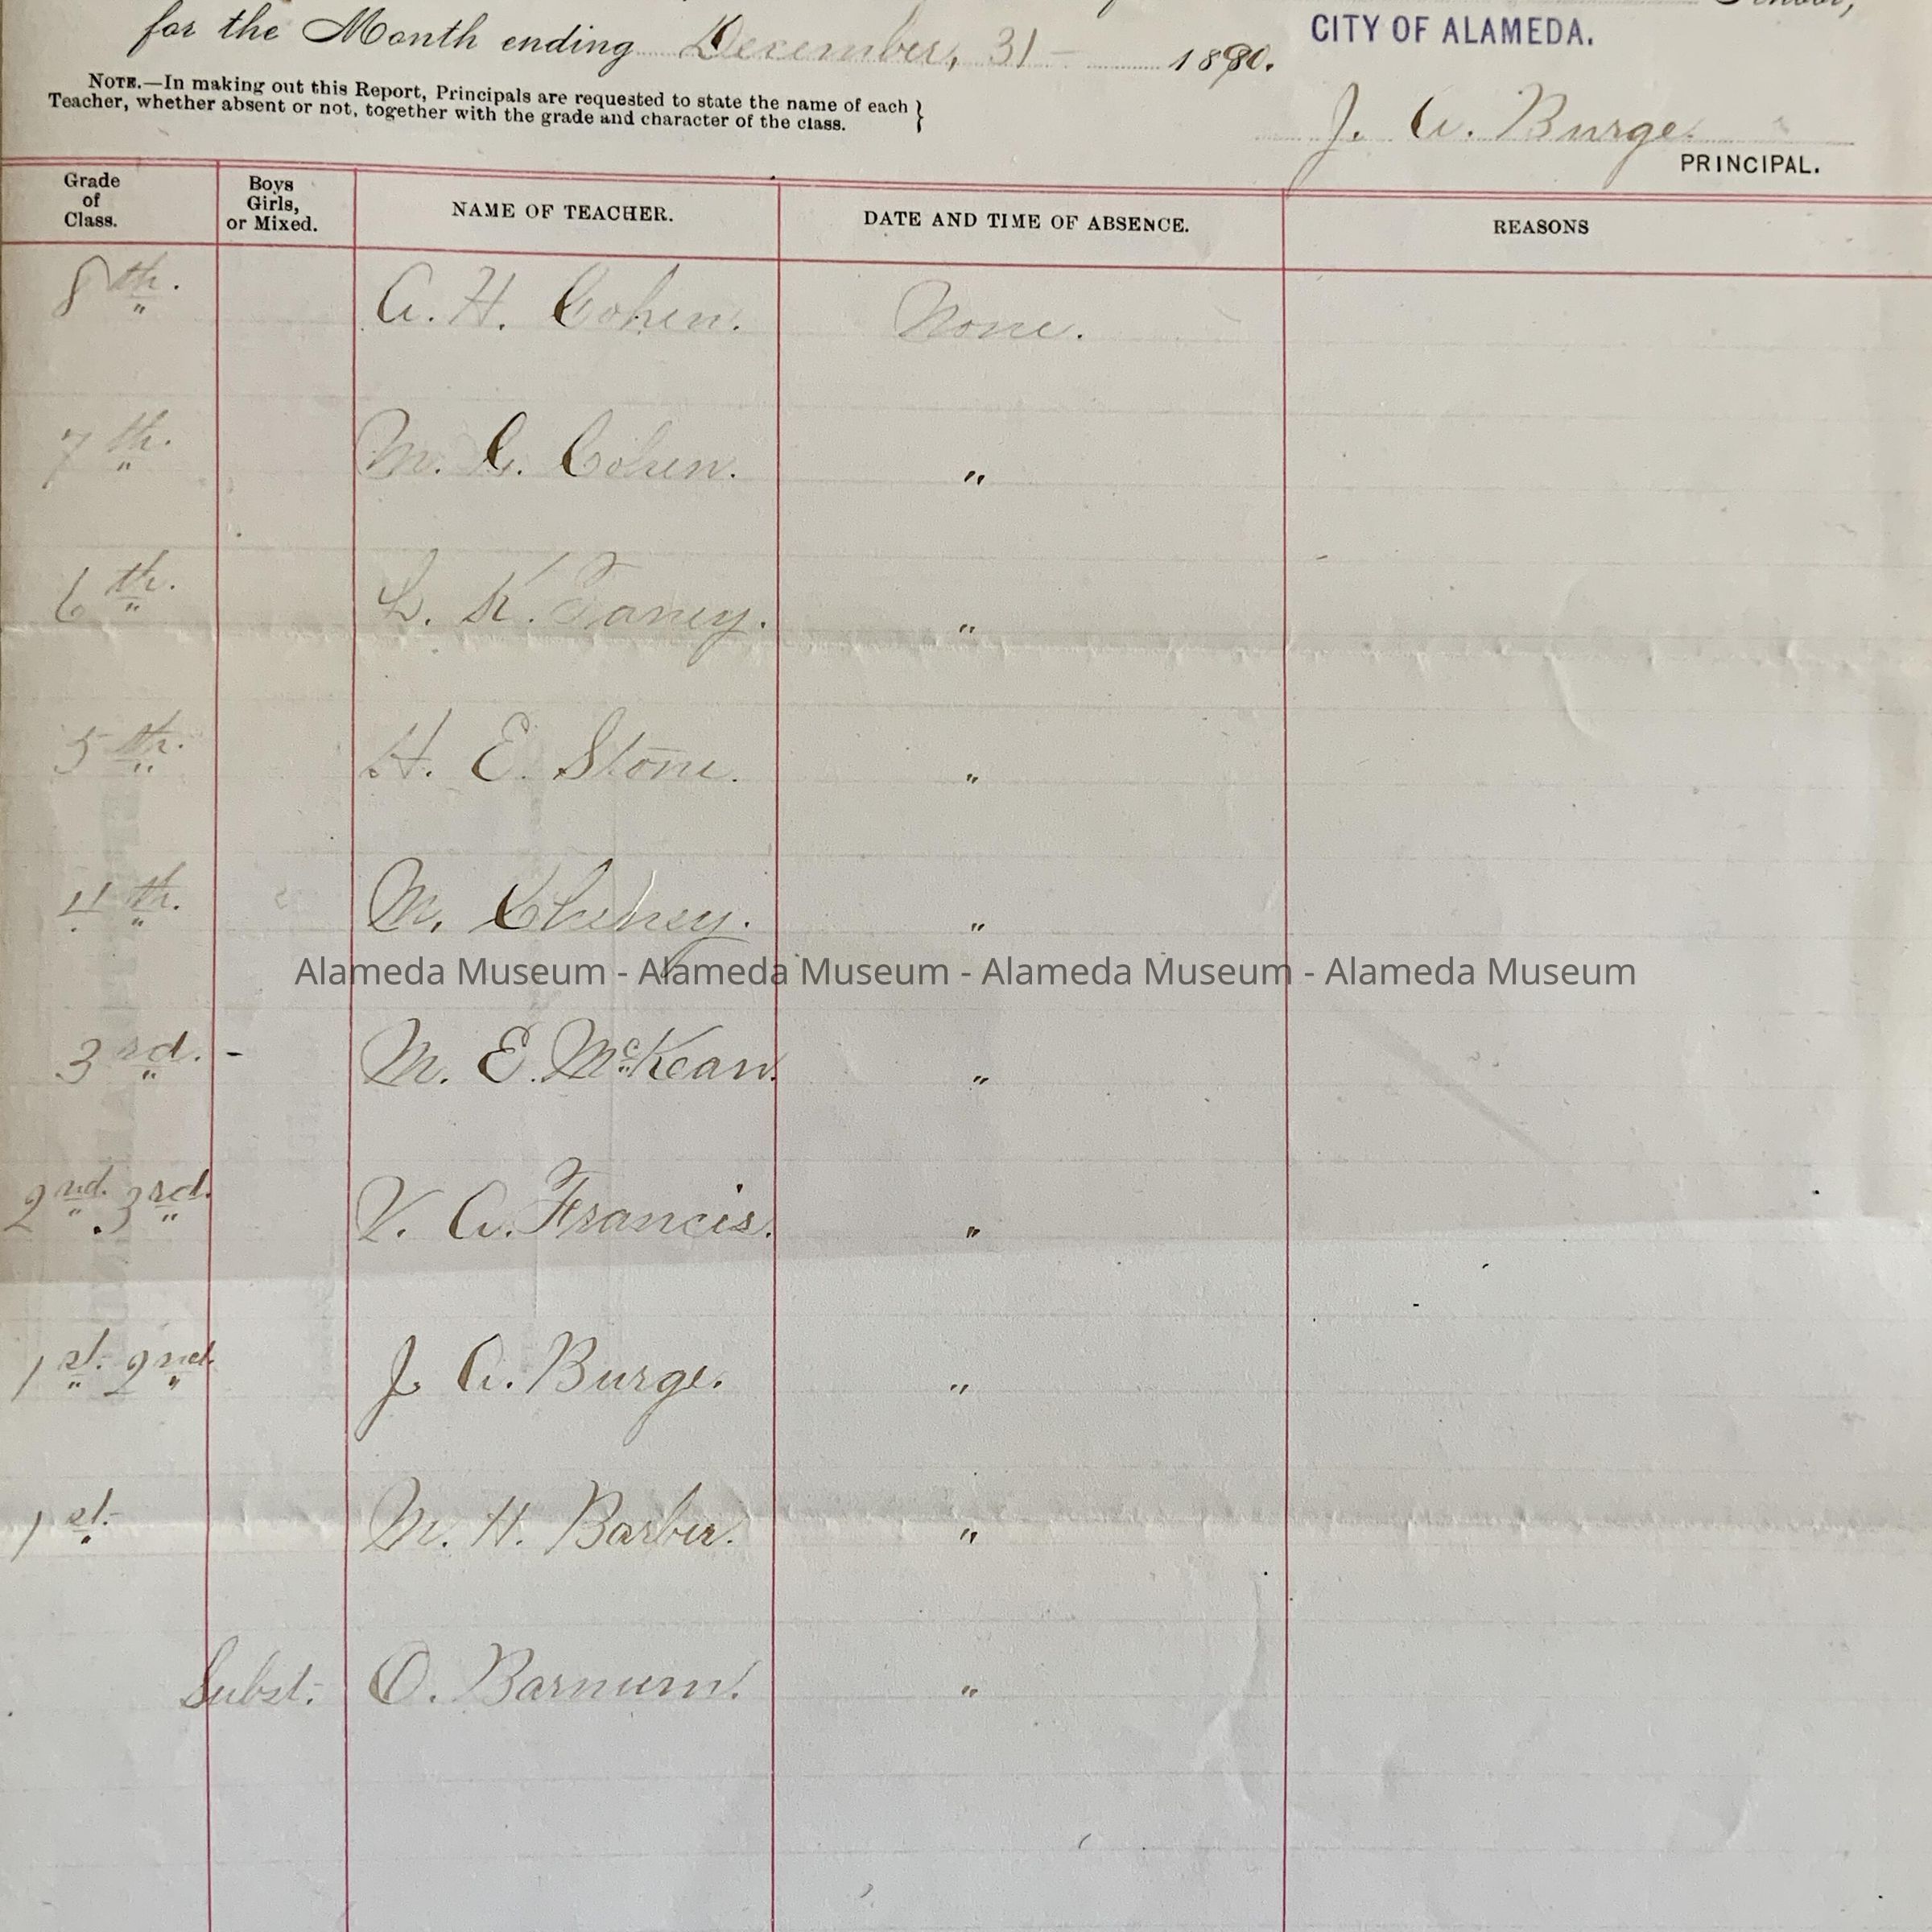 School,
for the Month ending December, 31 — 1890.
CITY OF ALAMEDA.
NOTE.—In making out this Report, Principals are requested to state the name of each
Teacher, whether absent or not, together with the grade and character of the class.
J. A. Burge.
PRINCIPAL.
Grade of Class. Boys Girls, or Mixed. NAME OF TEACHER. DATE AND TIME OF ABSENCE. REASONS
8th. A. H. Cohen. None.
7th. M. C. Cohen. "
6th. L. K. Taney. "
5th. H. E. Stone. "
4th. M. "
Alameda Museum - Alameda Museum - Alameda Museum - Alameda Museum
3rd. - M. E. McKean. "
2nd. 3rd. V. A. Francis. "
1st. 2nd. J. A. Burge. "
1st. M. H. Barber. "
Subst. O. Barnum. "